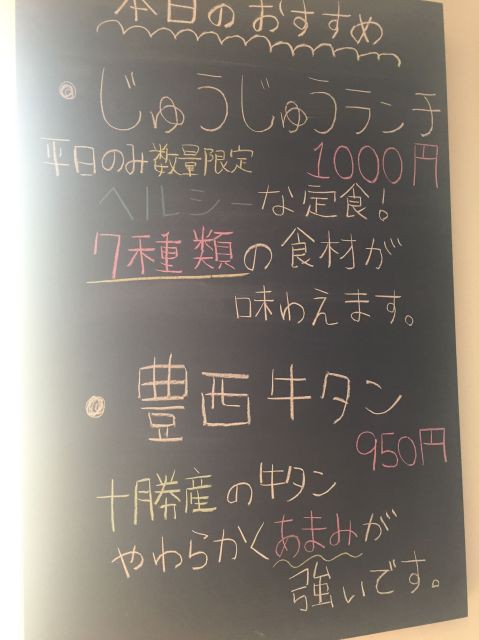 本日のおすすめ
・じゅうじゅうランチ
平日のみ数量限定 1000円
ヘルシーな定食!
7種類の食材が
味わえます。
・豊西牛タン
950円
十勝産の牛タン
やわらかくあまみが
強いです。